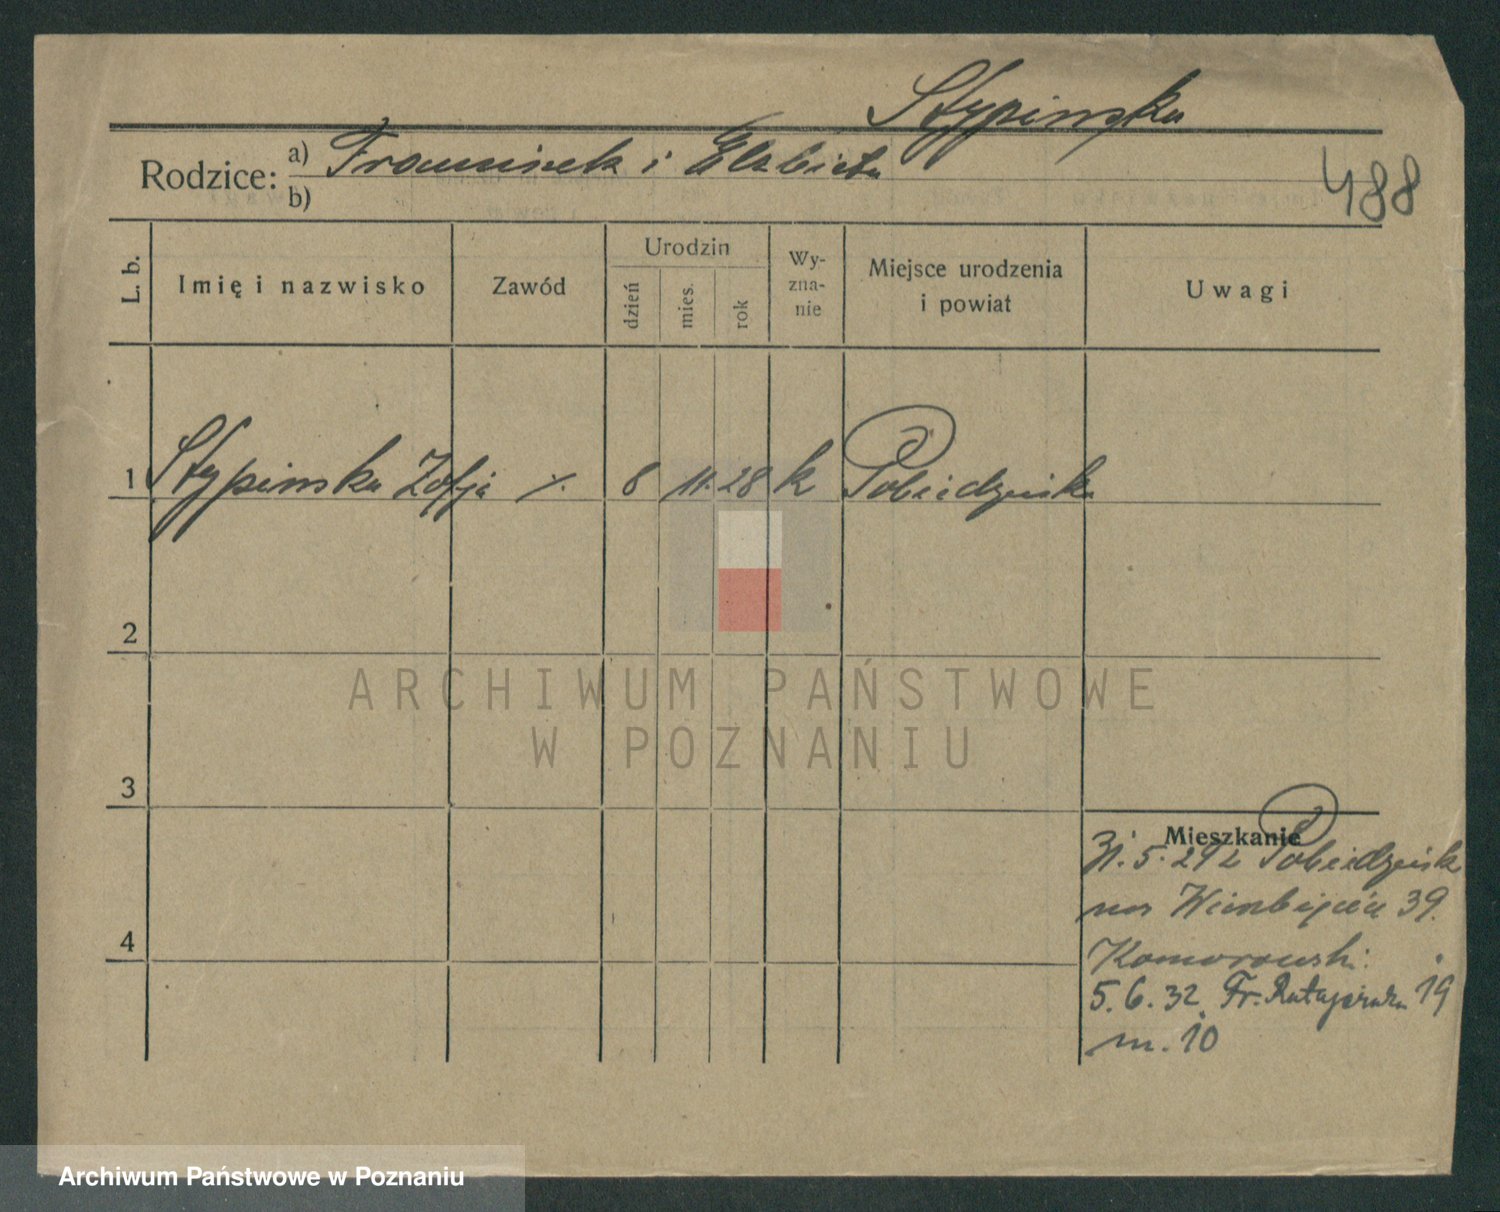 Stypinska
Rodzice: a) Franciszek i Elzbieta
b)
488
L. b.
Imię i nazwisko
Zawód
Urodzin
dzień
mies.
rok
Wy-
zna-
nie
Miejsce urodzenia
i powiat
Uwagi
1 Stypinska Zofja ·/. 8 11. 28 k Pobiedziska
2
3
4
Mieszkanie
5. Pobiedzisk
39.
Komorowski
5. 6. 32 Fr. Ratajczaka 19
m. 10
ARCHIWUM PAŃSTWOWE
W POZNANIU
Archiwum Państwowe w Poznaniu